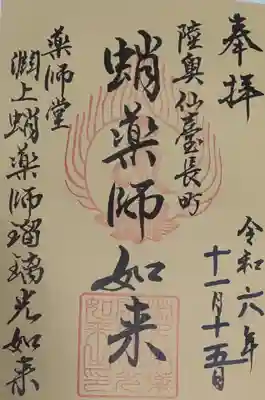 奉拝
令和六年
十一月十五日
陸奥仙臺長町
蛸薬師如来
薬師堂
渕上蛸薬師瑠璃光如来